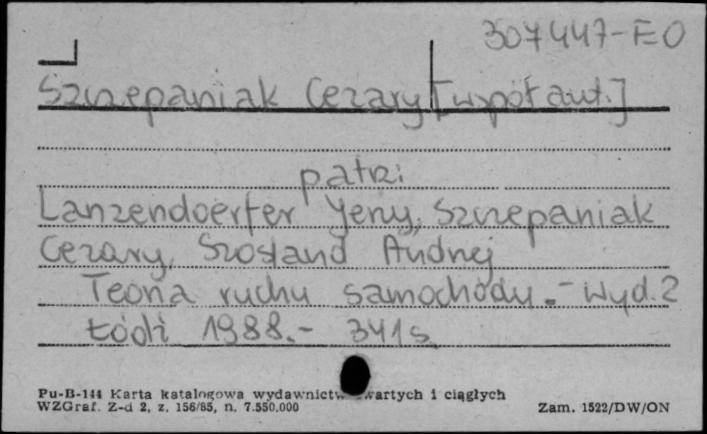 307447-E0
Szczepaniak Cezary [współaut.]
patrz:
Lanzendoerfer Jerzy, Szczepaniak
Cezary, Szosland Andrzej
Teoria ruchu samochodu. - Wyd. 2
Łódź 1988. - 341 s.
Pu-B-144 Karta katalogowa wydawnictw zwartych i ciągłych
WZGraf. Z-d 2, z. 156/85, n. 7.550.000
Zam. 1522/DW/ON